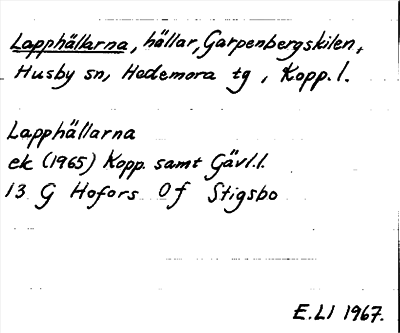 Lapphällarna, hällar, Garpenbergskilen,
Husby sn, Hedemora tg, Kopp. l.
Lapphällarna
ek (1965) Kopp. samt Gävl.l.
13 G Hofors 0 f Stigsbo
E.LI 1967.